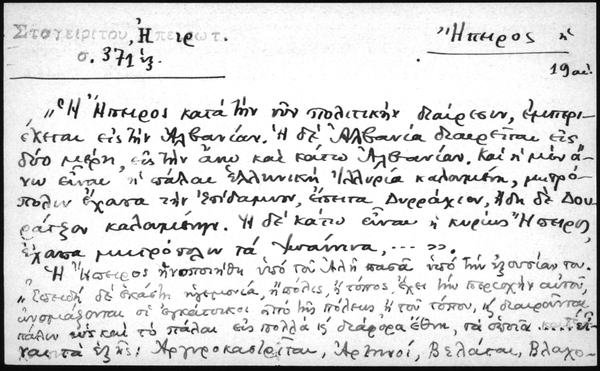 Σταγειρίτου, Ἠπειρωτ.
σ. 371 ἑξ.
Ἤπειρος ἡ
19 αἰ.
„Ἡ Ἤπειρος κατὰ τὴν νῦν πολιτικὴν διαίρεσιν, ἐμπερι-
έχεται εἰς τὴν Ἀλβανίαν. Ἡ δὲ Ἀλβανία διαιρεῖται εἰς
δύο μέρη, εἰς τὴν ἄνω καὶ κάτω Ἀλβανίαν. Καὶ ἡ μὲν ἄ-
νω εἶναι ἡ πάλαι Ἑλληνικὴ Ἰλλυρία καλουμένη, μητρό-
πολιν ἔχουσα τὴν Ἐπίδαμνον, ἔπειτα Δυρράχιον, ἤδη δὲ Δου-
ράτζον καλουμένην. Ἡ δὲ κάτω εἶναι ἡ κυρίως Ἤπειρος,
ἔχουσα μητρόπολιν τὰ Ἰωάννινα, ... ».
Ἡ Ἤπειρος ἡνοποιήθη ὑπὸ τοῦ Ἀλῆ πασᾶ ὑπὸ τὴν ἐξουσίαν του.
„Ἐπειδὴ δὲ ἑκάστη ἡγεμονία, ἢ πόλις, ἢ τόπος, ἔχει τὴν περιοχὴν αὑτοῦ,
ὀνομάζονται οἱ ἐγκάτοικοι ἀπὸ τῆς πόλεως ἢ τοῦ τόπου, κ διαιροῦνται
πάλιν ὡς καὶ τὸ πάλαι εἰς πολλὰ κ διάφορα ἔθνη, τὰ ὁποῖα .... εἶ-
ναι τὰ ἑξῆς: Ἀργυροκαστρῖται, Βελᾶται, Βλαχο-